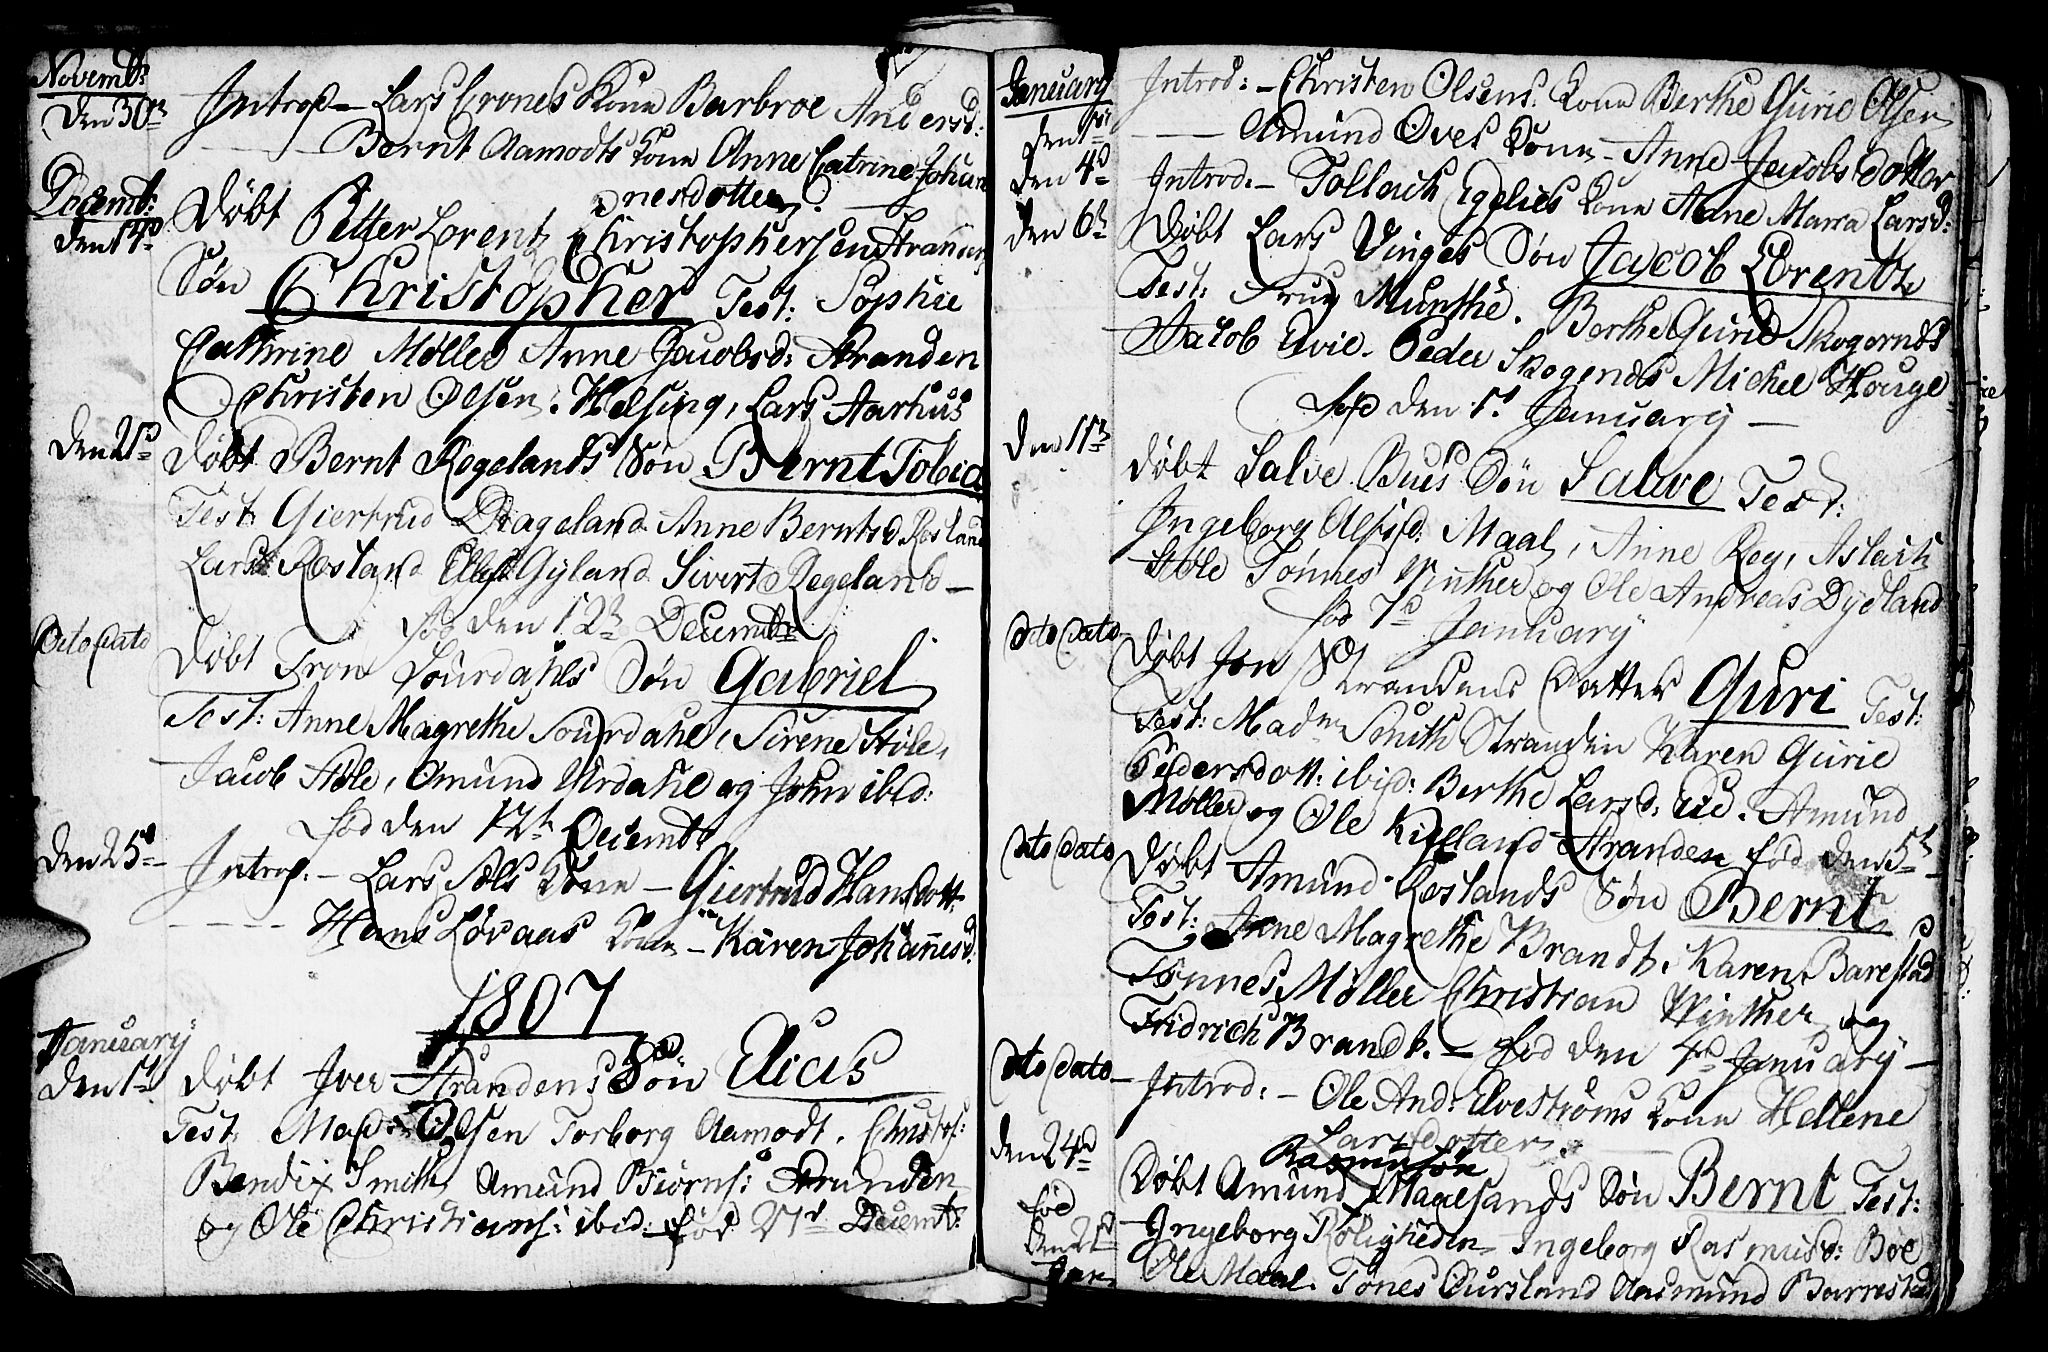 Novembr:
den 30te Introd – Lars Crones Kone Barbroe Andersd:
– – – Bernt Aamodts Kone Anne Catrine Johan
nesdotter.
Decemb:
den 14d Døbt Petter Lorentz Christophersen Stranens
Søn Christopher Test: Sophie
Cathrine Møller Anne Jacobsd: Stranden
Christen Olsen. Helsing, Lars Aarhus
den 21d Døbt Bernt Regelands Søn Bernt Tobias
Test Giertrud Drageland Anne Berntsd Rosland
Lars Rosland Gyland Sivert Regeland –
fød den 12te Decembr
Dito Dato Døbt Tron Lourdahls Søn Gabriel
Test: Anne Magrethe Lourdahl, Sirene Støle,
Jacob Støle, Omund Urdahl og John ibid:
fød den 12te Decembr
den 25d Introd: – Lars Kone – Giertrud Hansdott:
– – – – Hans Løvaas Kone – Karen Johannesd:
1807
January
den 1d Døbt Iver Strandens Søn Elias
Test. Mad: Olsen Torborg Aamodt. Christof:
Bendix Smith, Amund Biørns: Stranden
og Ole Christians: ibid: fød 27d Decemb:
January
den 1d Introd: – Christen Olsens Kone Berthe Gurie Olsen
– – – Amund Oves Kone – Anne Jacobsdotter
den 4d Introd. – Tollach Egelies Kone Anne Maria Larsd:
den 6te Døbt Lars Vinges Søn Jacob Lorentz
Test: Frue Munthe. Berthe Gurie Skogends
Jacob Evie. Peder Skogends Michel Houge
fød den 1d January –
den 11te Døbt Salve Bues Søn Salve Test:
Ingeborg Maal, Anne Rey, Aslach
Støle Tønnes Winther og Ole Andreas Dydland
fød 7d January
Dito Dato Døbt Jon Strandens Datter Guri Test:
Test: Madm Smith Stranden Karen Gurie
Pedersdott: ibid: Berthe Larsd: Amund
Møller og Ole Kielland Stranden fød den 5te
Dito Dato Døbt Amund Roslands Søn Bernt
Test: Anne Magrethe Brandt, Karen Barestad
Tønnes Møller Christian Winther og
Fridrich Brandt. – fød den 4d January –
Dito Dato – Introd: – Ole And: Elvestrøms Kone Hellene
Larsdotter. –
den 24d Døbt Amund Rasmusson Maalesands Søn Bernt Test:
fød Ingeborg Roligheden, Ingeborg Rasmusd: Boe
den 21d Ole Maal. Tønes Dursland Aasmund Barrestad
Jan: